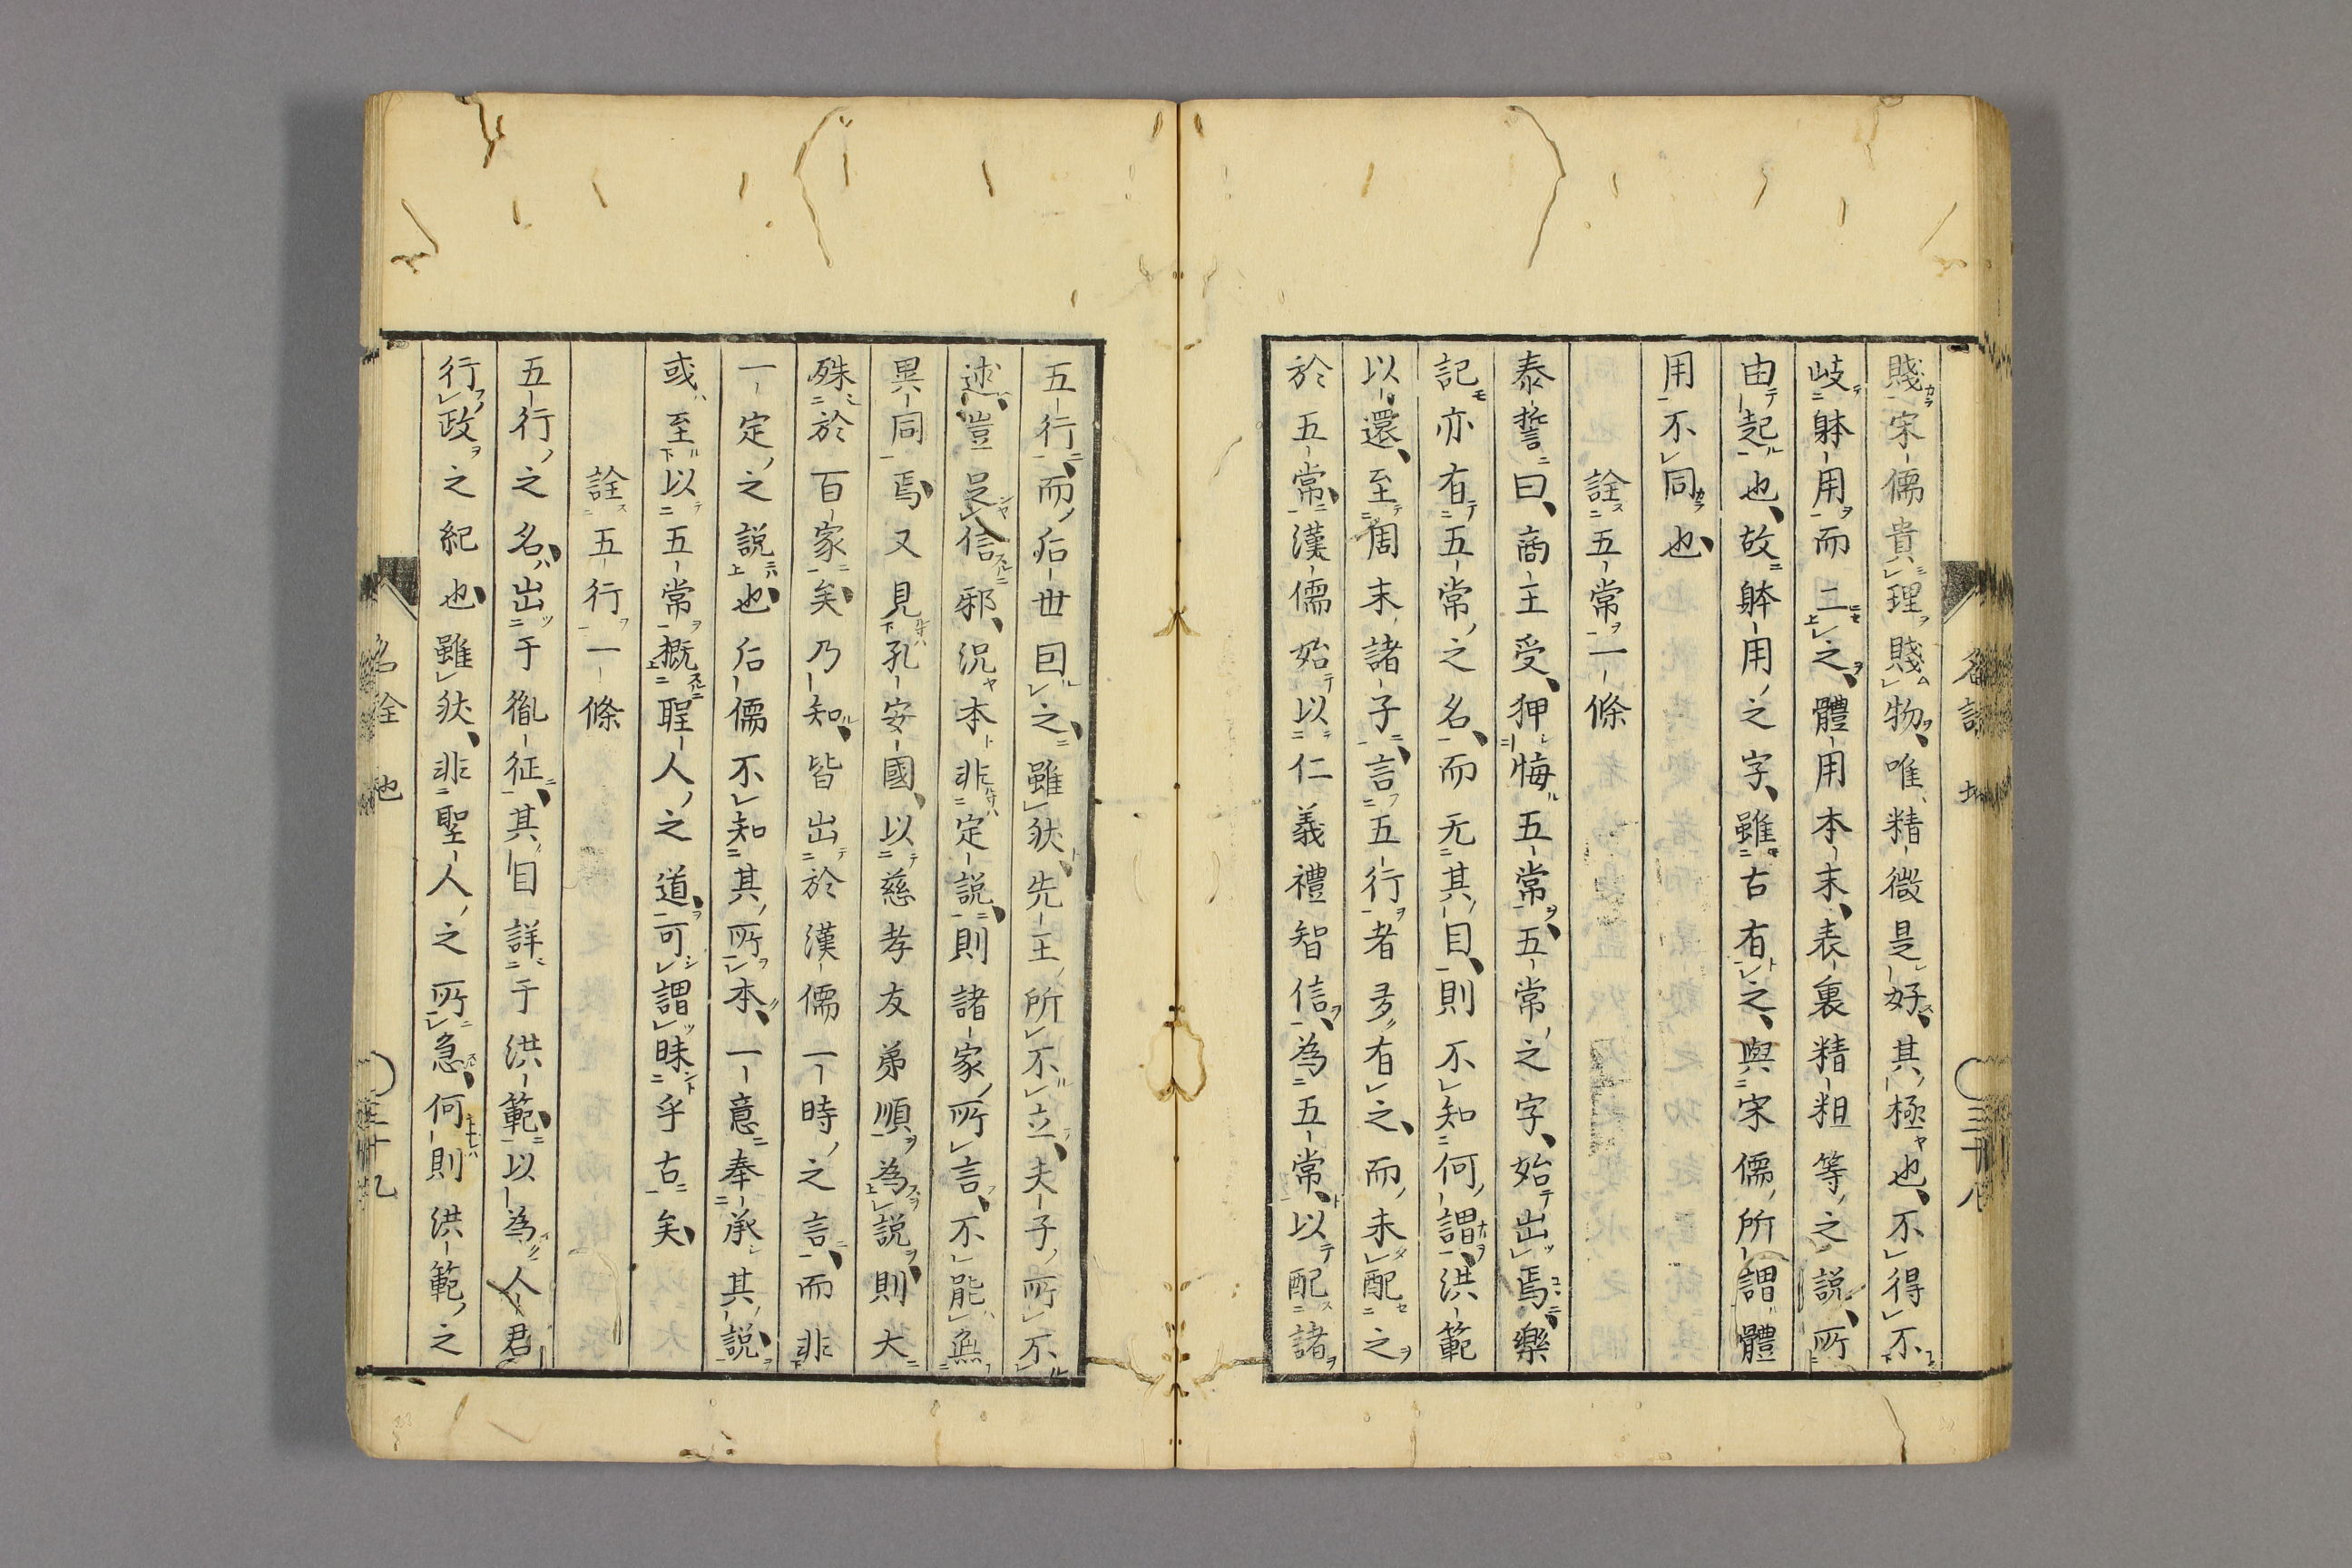 賤宋儒貴理賤物唯精微是好其極也不得不
岐躰用而二之體用本末表裏精粗等之説所
由起也故躰用之字雖古有之與宋儒所謂體
用不同也
詮五常一條
泰誓曰商王受狎悔五常五常之字始出焉樂
記亦有五常之名而无其目則不知何謂洪範
以還至周末諸子言五行者多有之而未配之
於五常漢儒始以仁義禮智信為五常以配諸
五行而后世因之雖然先王所不立夫子所不
述豈足信邪況本非定説則諸家所言不能無
異同焉又見孔安國以慈孝友弟順為説則大
殊於百家矣乃知皆出於漢儒一時之言而非
一定之説也后儒不知其所本一意奉承其説
或至以五常概聖人之道可謂昧乎古矣
詮五行一條
五行之名出于胤征其目詳于洪範以為人君
行政之紀也雖然非聖人之所急何則洪範之
名詮
三十八
名詮 也
三十九